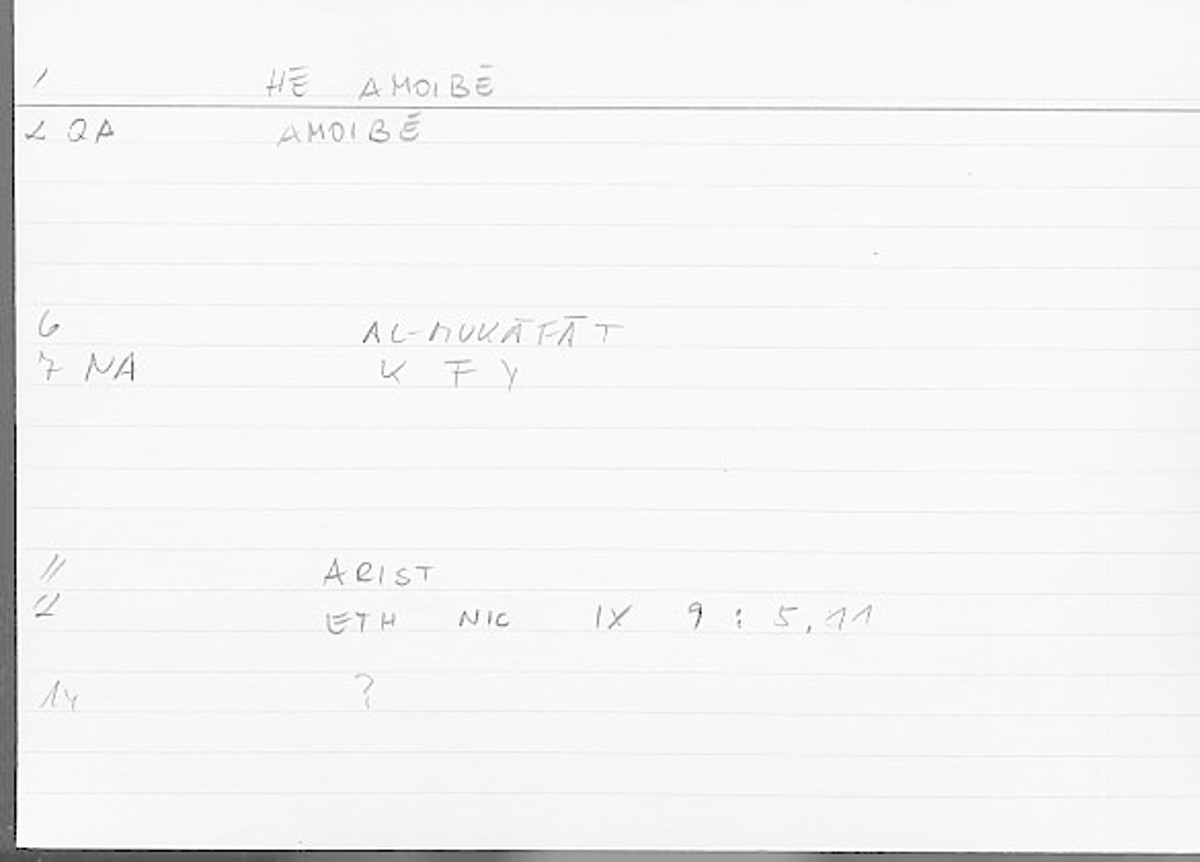 1 HĒ AMOIBĒ
2 QA AMOIBĒ
6 AL-MUKĀFĀT
7 NA K F Y
11 ARIST
12 ETH NIC IX 9 : 5, 11
14 ?